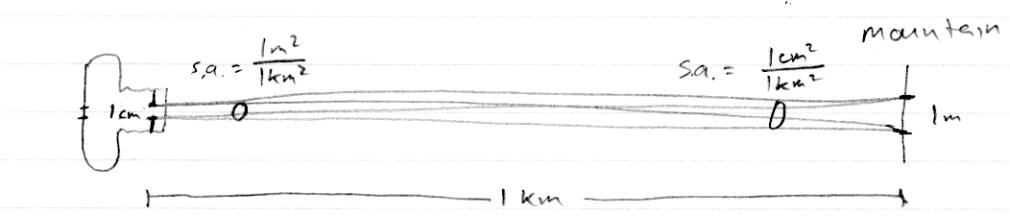 mountain
s.a. = 1m²/1km²
s.a. = 1cm²/1km²
1cm
1m
1 km